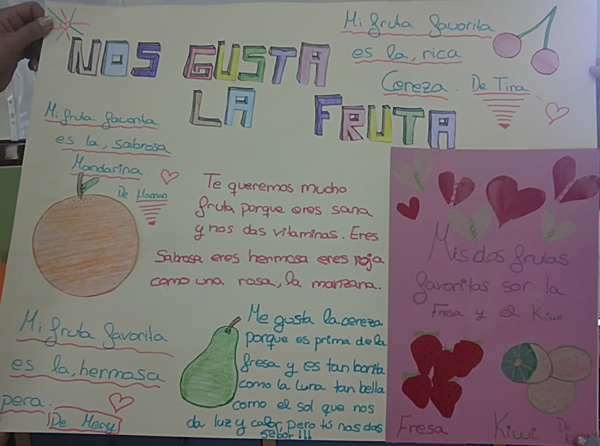 NOS GUSTA
LA FRUTA
Mi fruta favorita
es la, rica
Cereza. De Tina
Mi fruta favorita
es la, sabrosa
Mandarina
De
Te queremos mucho
fruta porque eres sana
y nos das vitaminas. Eres
Sabrosa eres hermosa eres roja
como una rosa, la manzana.
Mis dos frutas
favoritas son la
Fresa y el Kiwi
Fresa Kiwi De
Mi fruta favorita
es la, hermosa
pera.
De Mery
Me gusta la cereza
porque es prima de la
fresa y es tan bonita
como la luna tan bella
como el sol que nos
da luz y calor, pero tú nos das
sabor!!!